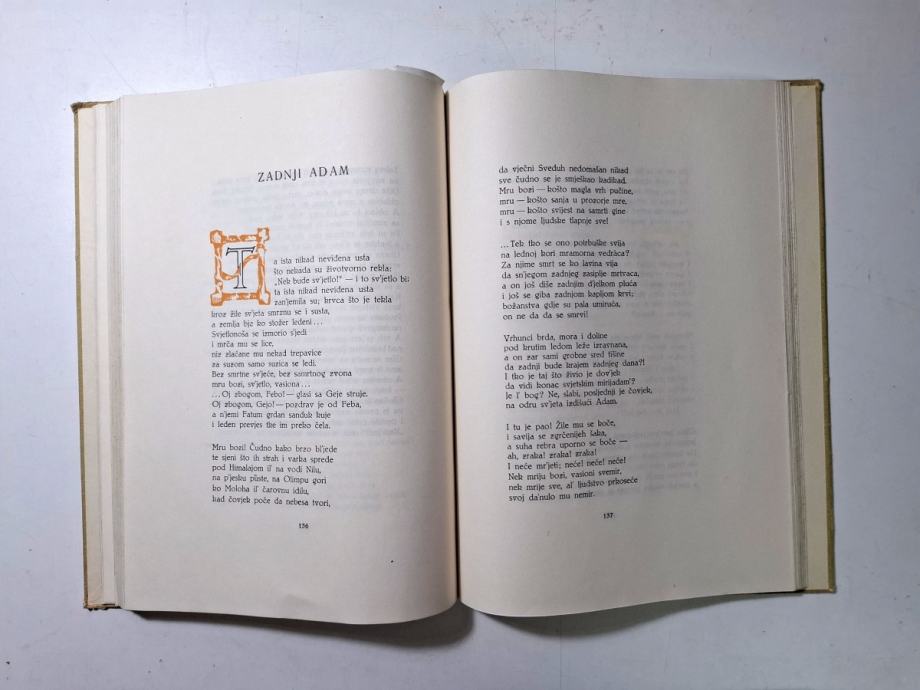 ZADNJI ADAM
Ta ista nikad neviđena usta
što nekada su životvorno rekla:
„Nek bude sv'jetlo!" — i to sv'jetlo bi;
ta ista nikad neviđena usta
zan'jemila su; krvca što je tekla
kroz žile sv'jeta smrznu se i susta,
a zemlja bje ko stožer ledeni...
Svjetlonoša se izmorio s'jedi
i mrča mu se lice,
niz zlaćane mu nekad trepavice
za suzom samo suzica se ledi.
Bez smrtne sv'jeće, bez samrtnog zvona
mru bozi, sv'jetlo, vasiona...
...Oj zbogom, Febo! — glasi sa Geje struje.
Oj zbogom, Gejo! — pozdrav je od Feba,
a n'jemi Fatum grdan sanduk kuje
i leden prevjes tke im preko čela.
Mru bozi! Čudno kako brzo bl'jede
te sjeni što ih strah i varka sprede
pod Himalajom il' na vodi Nilu,
na p'jesku puste, na Olimpu gori
ko Moloha il' čarovnu idilu,
kad čovjek poče da nebesa tvori,
136
da vječni Sveduh nedomašan nikad
sve čudno se je smješkao kadikad.
Mru bozi — košto magla vrh pučine,
mru — košto sanja u prozorje mre,
mru — košto svijest na samrti gine
i s njome ljudske tlapnje sve!
...Tek tko se ono potrbuške svija
na lednoj kori mramorna vedraca?
Za njime smrt se ko lavina vija
da sn'jegom zadnjeg zasiplje mrtvaca,
a on još diše zadnjim d'jelkom pluća
i još se giba zadnjom kapljom krvi;
božanstva gdje su pala umiruća,
on ne da da se smrvi!
Vrhunci brda, mora i doline
pod krutim ledom leže izravnana,
a on zar sami grobne sred tišine
da zadnji bude krajem zadnjeg dana?!
I tko je taj što živio je dov'jek
da vidi konac svjetskim mirijadam'?
Je l' bog? Ne, slabi, posljednji je čovjek,
na odru sv'jeta izdišući Adam.
I tu je pao! Žile mu se koče,
i savija se zgrčenijeh šaka,
a suha rebra uporno se boče —
ah, zraka! zraka! zraka!
I neće mr'jeti; neće! neće! neće!
Nek mriju bozi, vasioni svemir,
nek mrije sve, al' ljudstvo prkoseće
svoj da'nulo mu nemir.
137